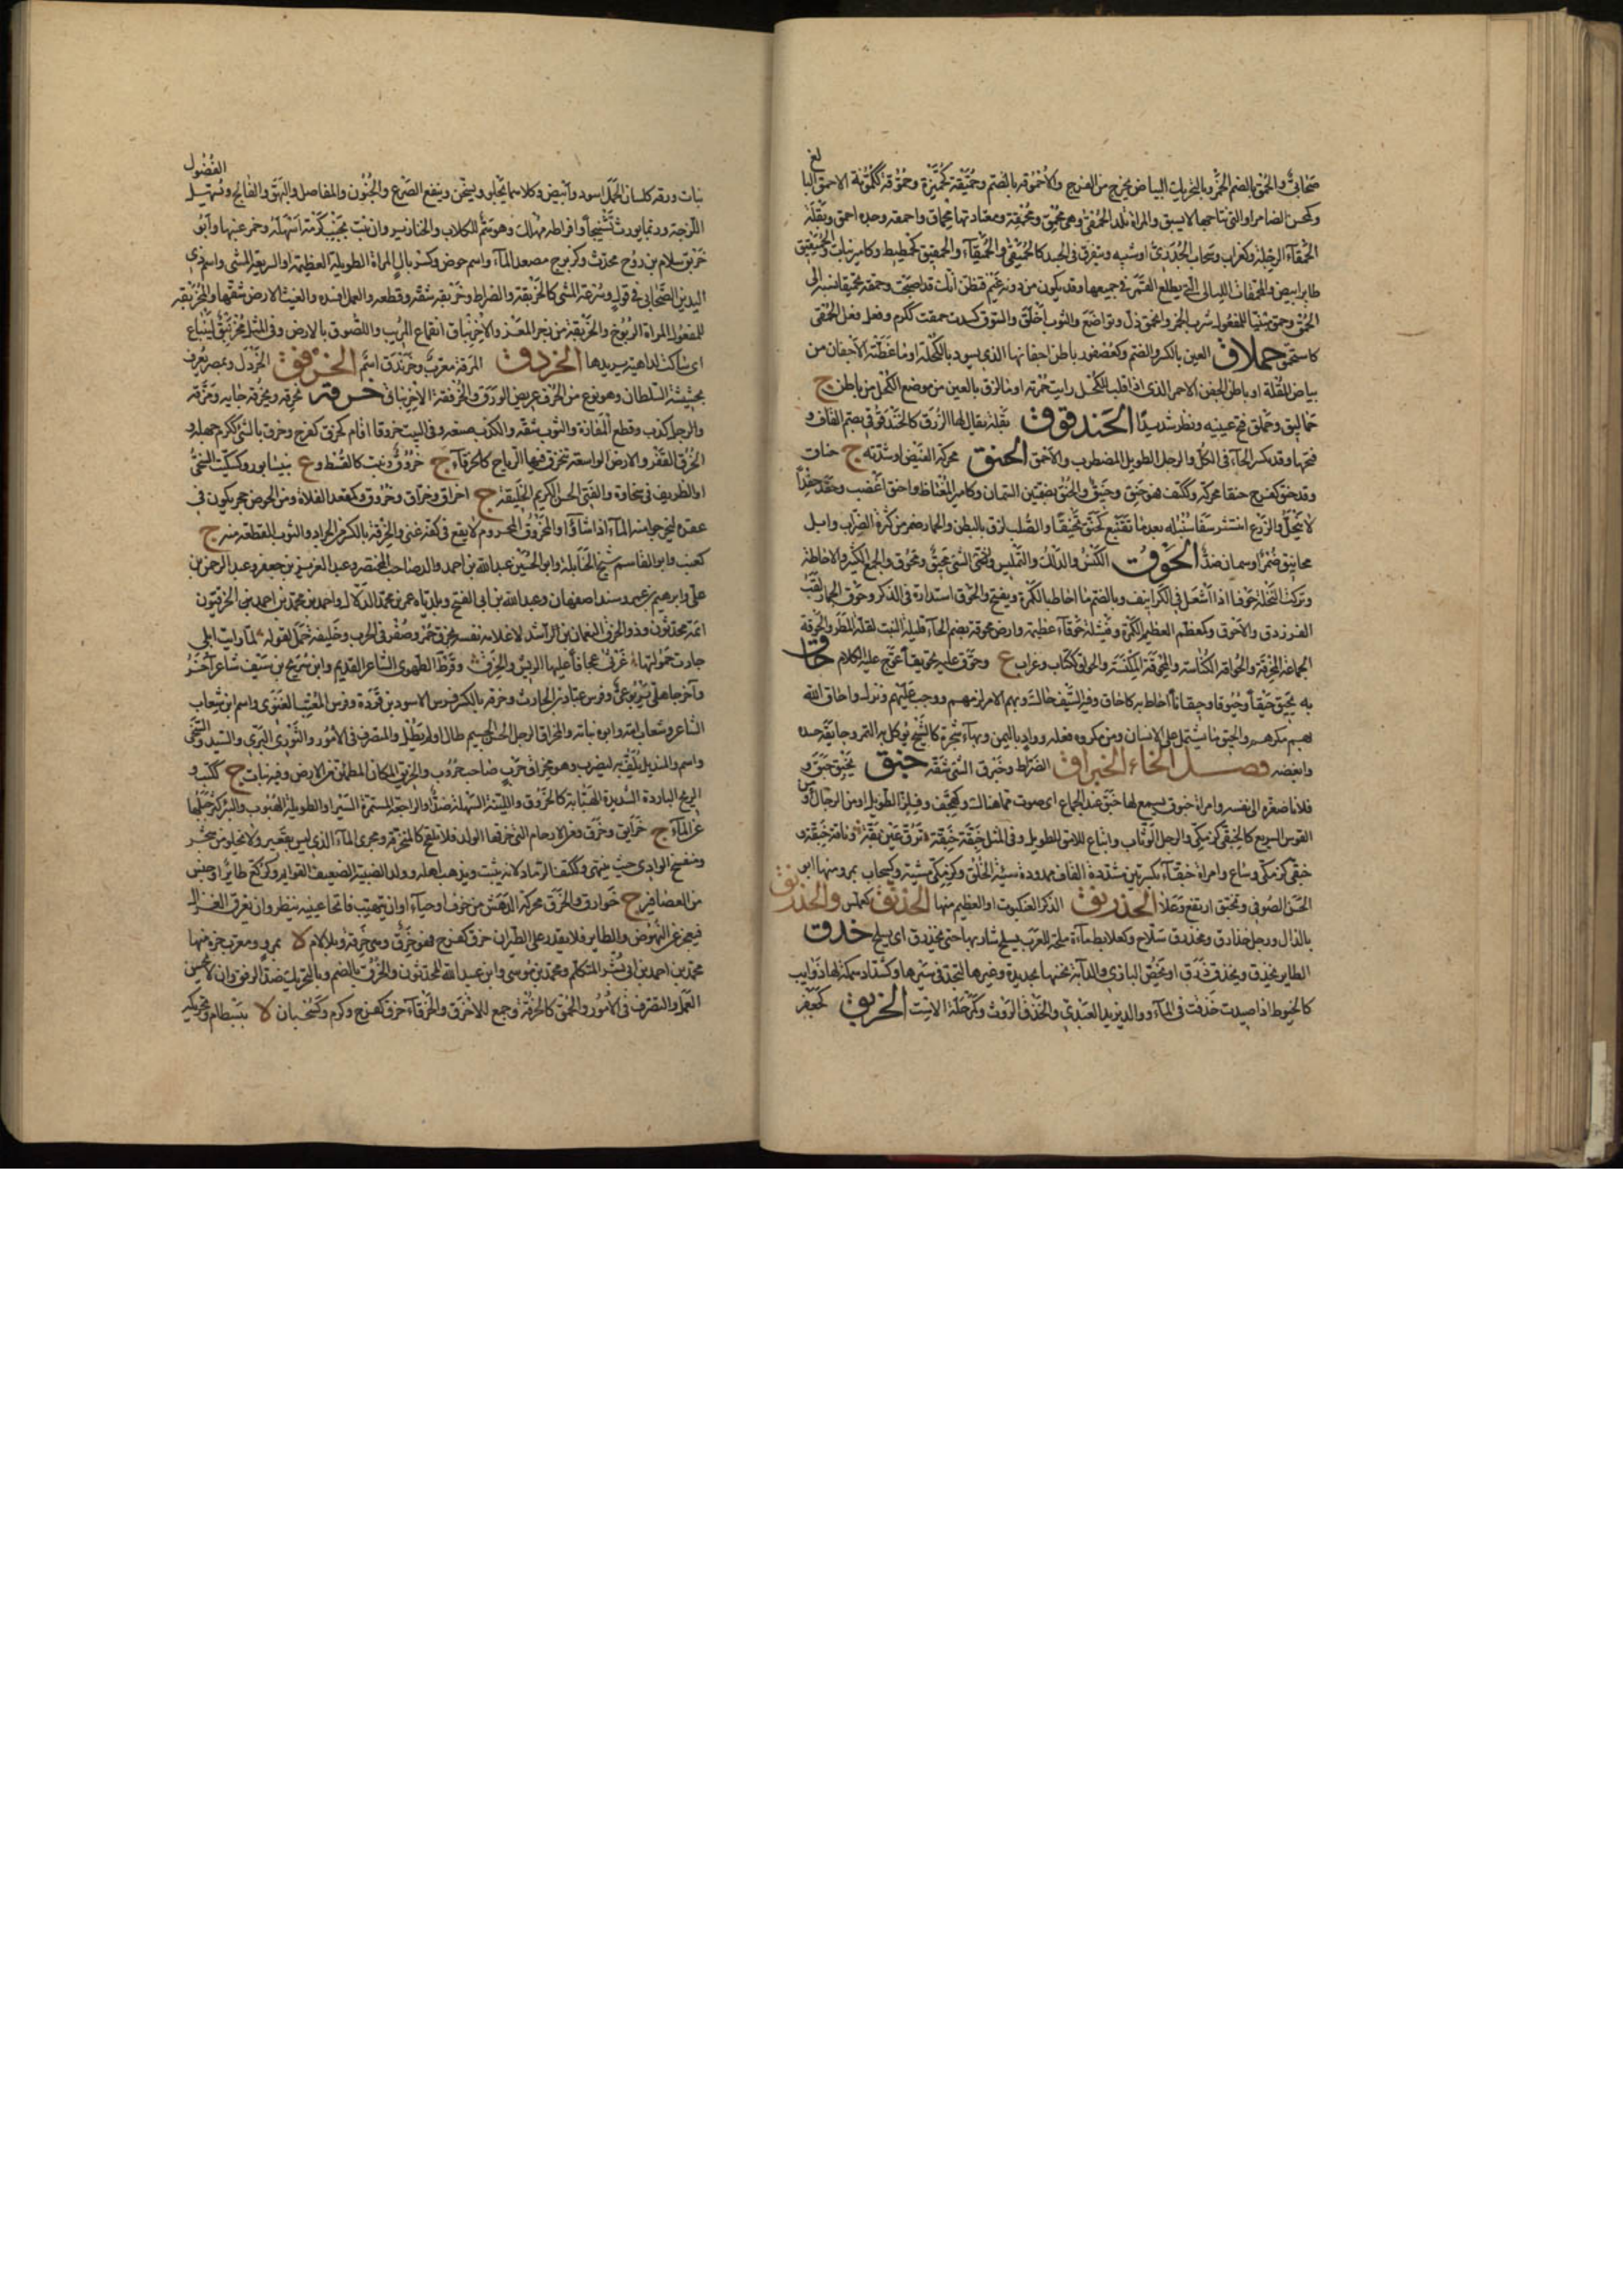 صحابي والحمق بالضم الخمر وبالتحريك البياض يخرج من الفرج والاحموقة بالضم وحميقة كجميزة وحموقة الاحمق البا
لغ
وكمحسن الضامر او التي نتاجها لا يسبق والمراة تلد الحمقى وهى محمق ومحمقة ومعتادتها محماق واحمقه وجده احمق وبقلة
الحمقاء الرجلة وكغراب وسحاب الجدرى او شبهه ويتفرق في الجسد كالحميقى والحميقاء والحمقيق كحطيط وكامير نبات والحميقيق
طاير ابيض والمحمقات الليالى التي يطلع القمر في جميعها وقد يكون من دونه غيم فتظن انك قد اصبحت وحمقه تحميقا نسبه الى
الحمق وحمق مبنيا للمفعول شرب الخمر وانحمق ذل وتواضع والثوب اخلق والسوق كسدت حمقت ككرم وفعل فعل الحمقى
كاستحمق حملاق العين بالكسر والضم وكعصفور باطن اجفانها الذي يسود بالكحلة او ما غطته الاجفان من
بياض المقلة او باطن الجفن الاحمر الذى اذا قلب للكحل رايت حمرته او ما لزق بالعين من موضع الكحل من باطن ج
حماليق وحملق فتح عينيه ونظر شديدا الحندقوق بقلة يقال لها الذرق كالحندقوقى بضم القاف و
فتحها وقد تكسر الحاء في الكل والرجل الطويل المضطرب والاحمق الحنق محركة الغيض او شدته ج حناق
وقد حنق كفرح حنقا محركة وككتف فهو حنق وحنيق والحنق بضمتين السمان وكامير المغتاظ واحنق اغضب وحقد حقدا
لا ينحل والزرع انتشر سفا سنبله بعد ما تقنبع كحنق تحنيقا والصلب لزق بالبطن والحمار ضمر من كثرة الضراب وابل
محانيق ضمر او سمان ضد الحوق الكنس والدلك والتمليس والشئ محيق ومحوق والجمع الكثير والاحاطة
وتركت النخلة حوقا اذا اشعل في الكرانيف وبالضم ما احاط بالكمرة ويفتح والحوق استدارة في الذكر وحوق الحمار لقب
الفرزدق والاحوق وكمعظم العظيم الكمرة وفيشلة حوقاء عظيمة وارض محوقة بضم الحاء قليلة النبت لقلة المطر والحوقة
الجماعة الممخرقة والحواقة الكناسة والمحوقة المكنسة والحواق ككتاب وغراب ع وحوق عليه تحويقا عوج عليه الكلام حاق
به يحيق حيقا وحيوقا وحيقانا احاط به كاحاق وفيه السيف حاك وبهم الامر لزمهم ووجب عليهم ونزل واحاق الله
بهم مكرهم والحيق ما يشتمل على الانسان من مكروه فعله وواد باليمن وبهاء شجرة كالشيح يوكل به التمر وحايقه حسده
وابغضه فصل الخاء الخبراق الضراط وخبرق الشئ شقه خبق يخبق خبق و
فلانا صغره الى نفسه وامراة خبوق يسمع لها خبق عند الجماع اى صوت مما هنالك وكهجف وفلز الطويل او من الرجال او من
الفرس السريع كالخبقى كزمكى والرجل الوثاب واتباع للامق للطويل وفي المثل خبقة خبقة ترق عين بقة وناقة خبقة و
خبقى كزمكى وساع وامراة خبقاء بكسرتين مشددة القاف ممدودة سيئة الخلق وكزمكى مشية وكسحاب بمرو منها ابن
الحسن الصوفى وتخبق ارتفع وعلا الخدرنق الذكر العنكبوت او العظيم منها الخذنق كعملس والخذرنق
بالذال ورجل خذارق ومخذرق سلاح وكعلابط ماءة ملحة للعرب يسلح شاربها حتى يخذرق اى يسلح خذق
الطاير يخذق ويخذق ذرق او يخص البازي والدابة نخسها بحديدة وغيرها لتجد في سيرها وكشداد سمكة لها ذوايب
كالخيوط اذا صيدت خذقت في الماء ووالد يزيد العبدي والخذق الروث وكمرحلة الاست الخربق كجعفر
الفضول
نبات ورقه كلسان الحمل اسود وابيض وكلاهما يجلو ويسخن وينفع الصرع والجنون والمفاصل والبهق والفالج ويسهل
اللزجة وربما يورث تشنجا وافراطه مهلك وهو سم للكلاب والخنازير وان نبت بجنب كرمة اسهل خمر عنبها وابو
خربق سلام بن روح محدث وكزبرج مصعد الماء واسم حوض وكسربال المراة الطويلة العظيمة او السريعة المشى واسم ذى
اليدين الصحابي في قول وسرعة المشى كالخربقة والضراط وخربقه شقه وقطعه والعمل افسده والغيث الارض شققها والمخربقة
للمفعول المراة الربوخ والخربقة من نجر المعز والاخرنباق انقماع المريب واللصوق بالارض وفي المثل مخرنبق لينباع
اى ساكت لداهية يريدها الخردق المرقة معرب وخرندق اسم الخرفق الخردل وبمصر يعرف
بحشيشة السلطان وهو نوع من الحرف عريض الورق والخرفقة الاخرنباق خرقه يخرقه ويخرقه جابه ومزقه
والرجل كذب وقطع المفازة والثوب شقه والكذب صنعه وفي البيت خروقا اقام كخرق كفرح وخرق بالشئ ككرم جهله و
الخرق القفر والارض الواسعة تتخرق فيها الرياح كالخرقاء ج خروق ونبت كالقسط وع بنيسابور وكسكيت السخى
او الظريف في سخاوة والفتى الحسن الكريم الخليقة ج اخراق وخراق وخروق وكمقعد الفلاة ومن الحوض حجر يكون في
عقره ليخرجوا منه الماء اذا شاؤا والمخروق المحروم لا يقع في كفه غنى والخرقة بالكسر من الجراد والثوب القطعة منه ج
كعنب وابو القاسم شيخ الحنابلة وابو الحسين عبد الله بن احمد والد صاحب المختصر وعبد العزيز بن جعفر وعبد الرحمن بن
على وابراهيم بن عمرو سند اصفهان وعبد الله بن ابى الفتح وبلدياه عمر بن محمد الدلال واحمد بن محمد بن احمد بن الخرقيون
ائمة محدثون وذو الخرق النعمان بن الراشد لاعلامه نفسه بخرق حمر وصفر في الحرب وخليفة بن حمل لقوله لما رات ابلى
جاءت حمولتها غرثى عجافا عليها الريش والخرق وقرط الطهوى الشاعر القديم وابن شريح بن سيف شاعر آخر
وآخر جاهلى يربوعى وفرس عباد بن الحارث وخرقة بالكسر فرس الاسود بن قردة وفرس المعتب الغنوى واسم ابن شعاب
الشاعر وشعاب امه وابوه نباتة والمخراق الرجل الحسن الجسيم طال او لم يطل والمتصرف في الامور والثور البرى والسيد والسخى
واسم والمنديل يلف به ليضرب وهو مخراق حرب صاحب حروب والخريق المكان المطمئن من الارض وفيه نبات ج ككتب و
الريح الباردة الشديدة الهبابة كالخروق واللينة السهلة ضد والراجعة المستمرة السير او الطويلة الهبوب والبئر كسر جبلها
عن الماء ج خرايق وخرق ومن الارحام التي خرقها الولد فلا تلقح كالمتخرقة ومجرى الماء الذي ليس بقعير ولا يخلو من شجر
ومنفسح الوادى حيث ينتهى وككتف الرماد لانه يثبت ويذهب اهله وولد الظبية الضعيف القوايم وكركع طائر او جنس
من العصافير ج خرارق والخرق محركة الدهش من خوف او حياء او ان يبهت فاتحا عينيه ينظر وان يفرق الغزال
فيعجز عن النهوض والطاير فلا يقدر على الطيران خرق كفرح فهو خرق وهى خرقة وبلا لام لا بمرو معرب خره منها
محمد بن احمد بن ابى بشر المتكلم ومحمد بن موسى وابن عبيد الله المحدثون والخرق بالضم وبالتحريك ضد الرفق وان لا يحسن
العمل والتصرف في الامور والحمق كالخرقة وجمع للاخرق والخرقاء خرق كفرح وكرم وكسحبان لا ببسطام وتحريكه